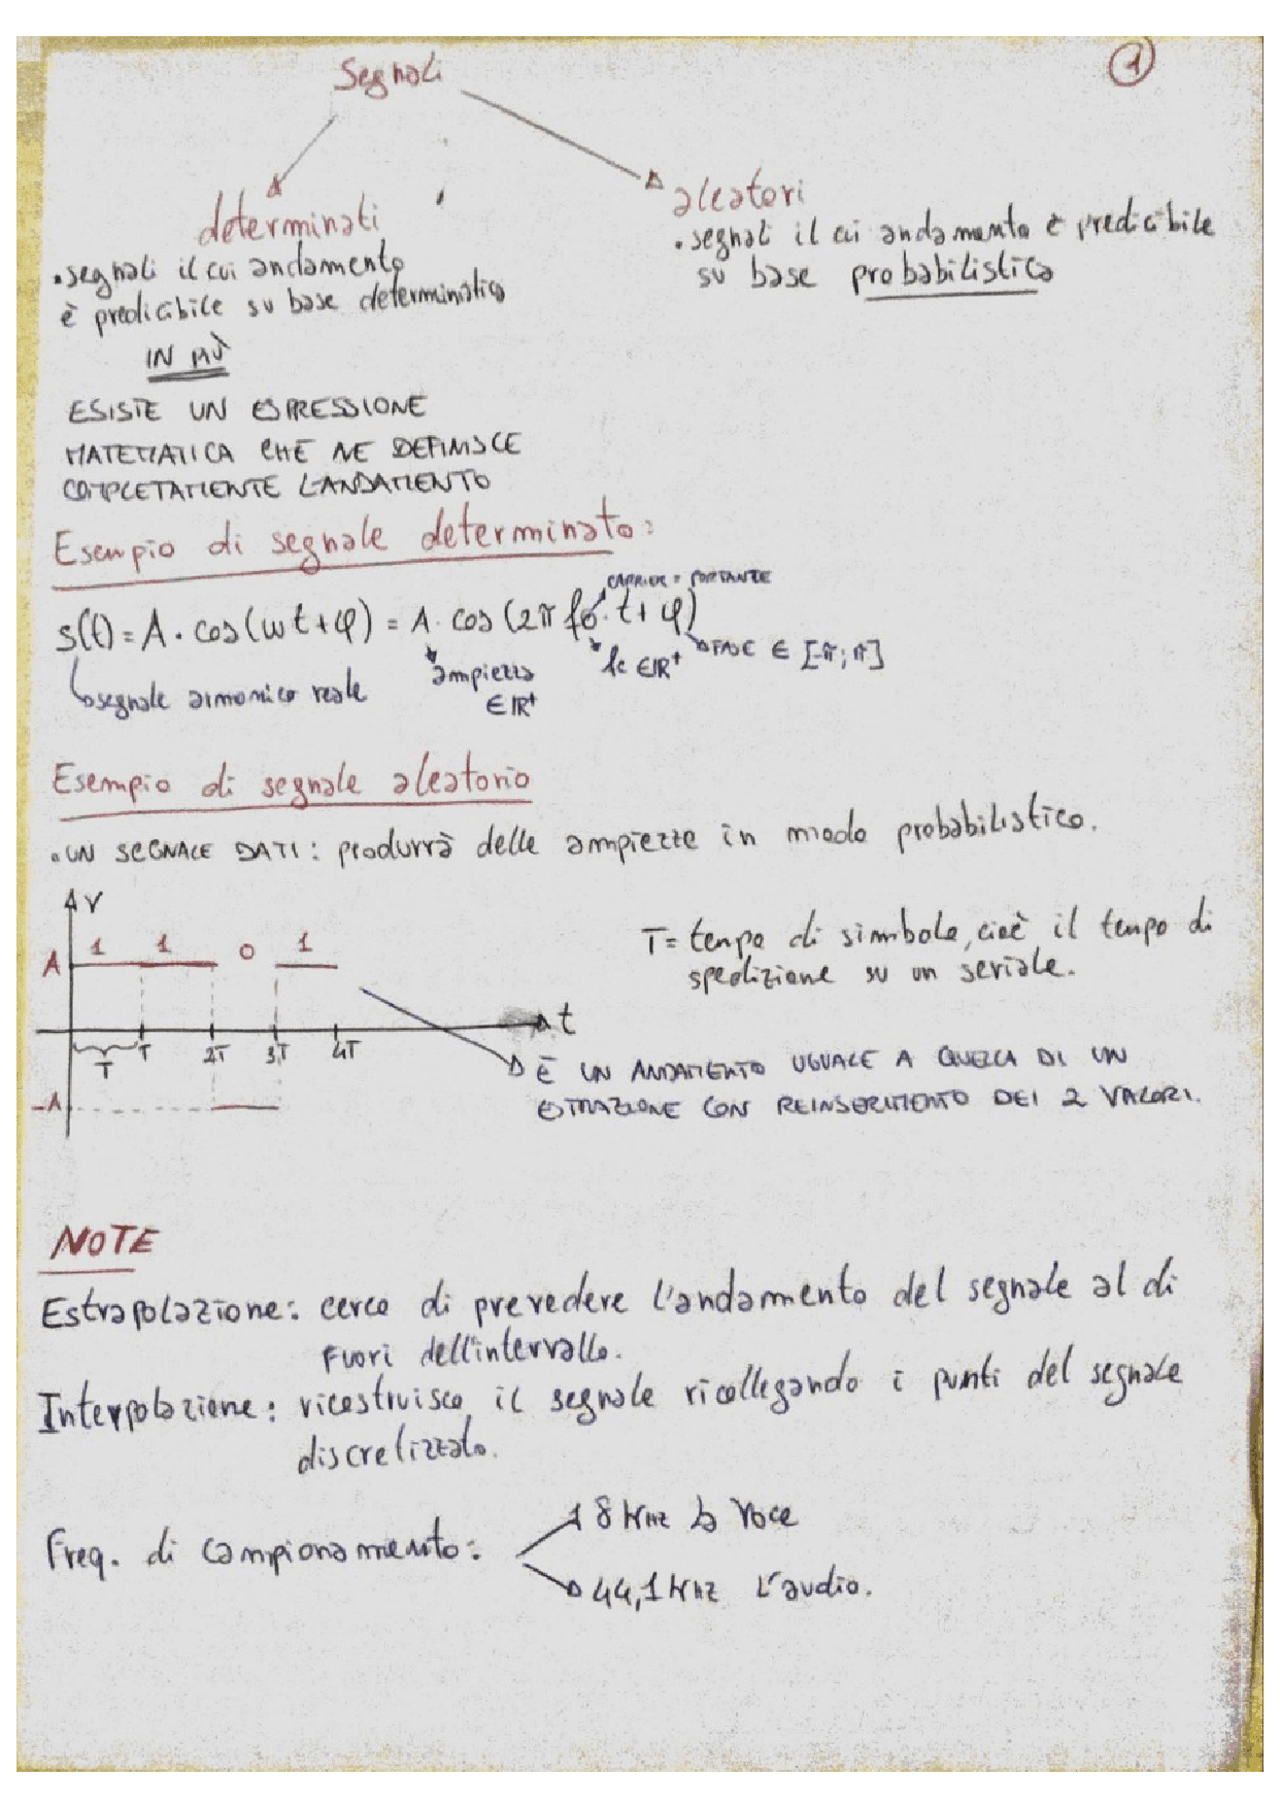 1
Segnali
determinati
aleatori
• segnali il cui andamento
è predicibile su base deterministica
• segnali il cui andamento è predicibile
su base probabilistica
IN PIÙ
ESISTE UN ESPRESSIONE
MATEMATICA CHE NE DEFINISCE
COMPLETAMENTE L'ANDAMENTO
Esempio di segnale determinato:
CARRIER = PORTANTE
s(t) = A · cos(ωt+φ) = A · cos(2π f0 · t + φ)
segnale armonico reale
ampiezza
∈ IR+
fc ∈ IR+
FASE ∈ [-π; π]
Esempio di segnale aleatorio
• UN SEGNALE DATI: produrrà delle ampiezze in modo probabilistico.
V
A 1 1 0 1
T = tempo di simbolo, cioè il tempo di
spedizione su un seriale.
t
T T 2T 3T 4T
-A
È UN ANDAMENTO UGUALE A QUELLA DI UN
ESTRAZIONE CON REINSERIMENTO DEI 2 VALORI.
NOTE
Estrapolazione: cerco di prevedere l'andamento del segnale al di
fuori dell'intervallo.
Interpolazione: ricostruisco il segnale ricollegando i punti del segnale
discretizzato.
Freq. di campionamento:
8 kHz la voce
44,1 kHz l'audio.